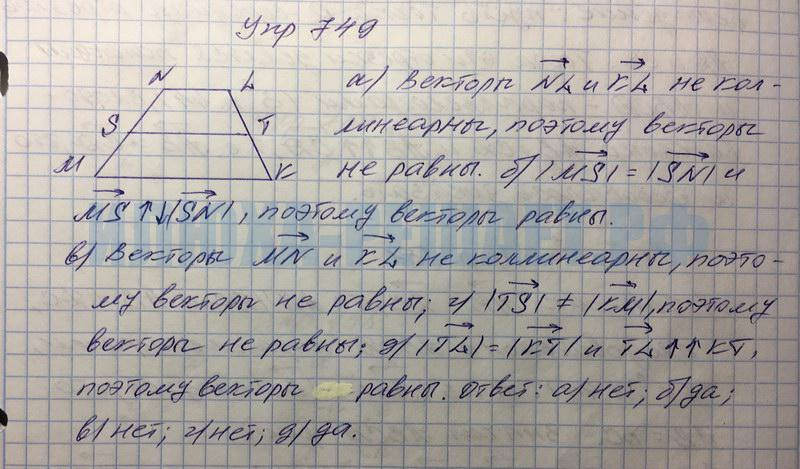 Упр 749
N L
S T
M K
а) Векторы NL и KL не кол-
линеарны, поэтому векторы
не равны. б) |MS| = |SN| и
MS ↑↓ |SN|, поэтому векторы равны.
в) Векторы MN и KL не коллинеарны, поэто-
му векторы не равны; г) |TS| ≠ |KM|, поэтому
векторы не равны; д) |TL| = |KT| и TL ↑↑ KT,
поэтому векторы равны. ответ: а) нет; б) да;
в) нет; г) нет; д) да.